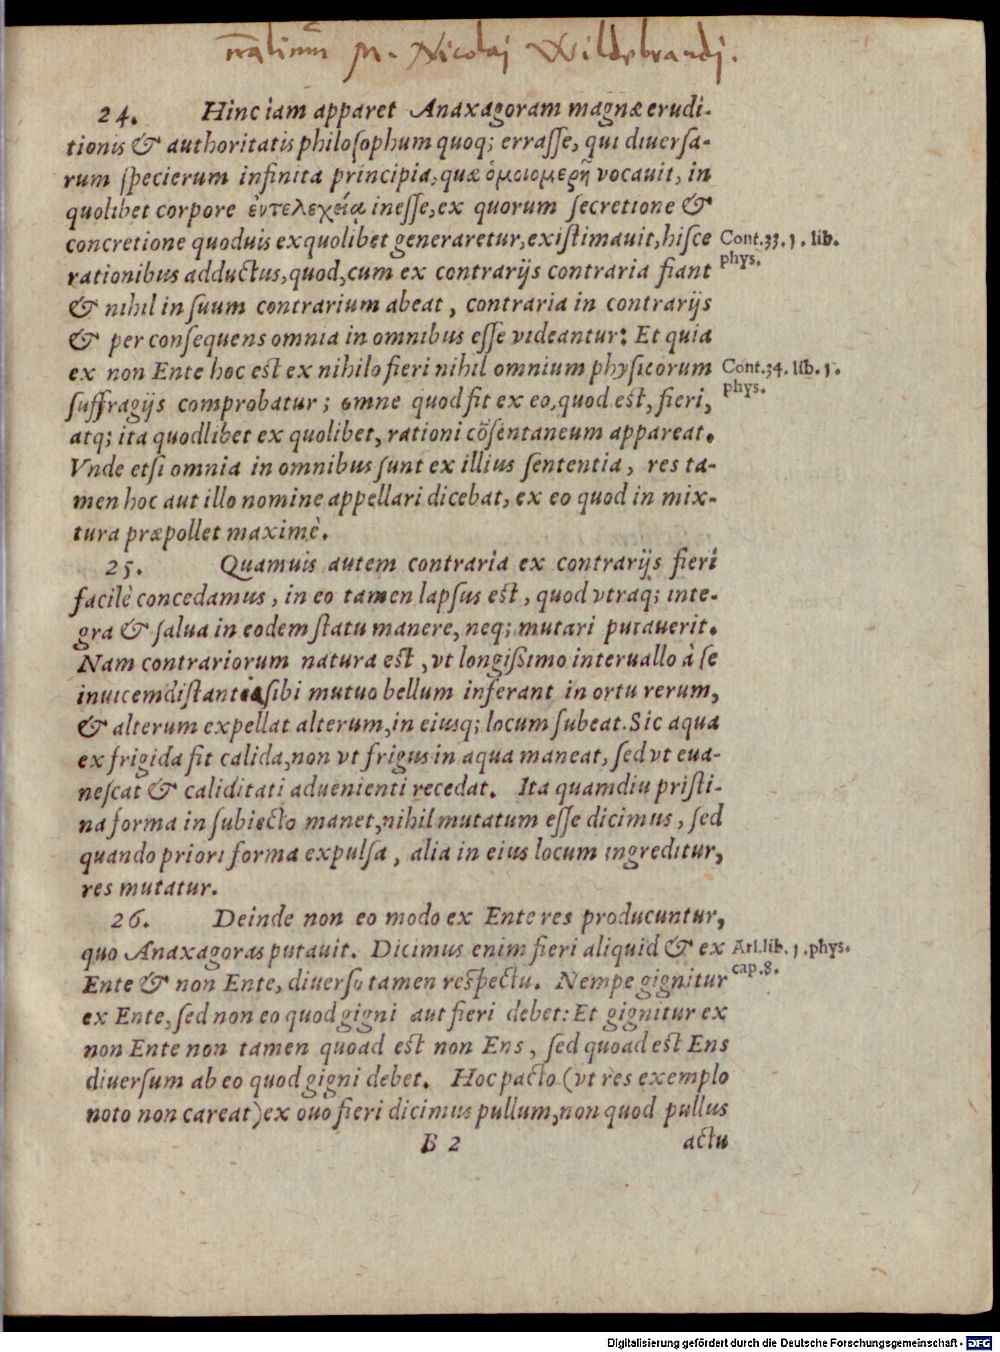 M. Nicolaj Wildebrandj.
24. Hinc iam apparet Anaxagoram magnæ erudi-
tionis & authoritatis philoſophum quoq; erraſſe, qui diuerſa-
rum ſpecierum infinita principia, quæ ὁμοιομερῆ vocauit, in
quolibet corpore ἐντελεχείᾳ ineſſe, ex quorum ſecretione &
concretione quoduis ex quolibet generaretur, exiſtimauit, hiſce
Cont. 33. 1. lib.
phys.
rationibus adductus, quod, cum ex contrarijs contraria fiant
& nihil in ſuum contrarium abeat, contraria in contrarijs
& per conſequens omnia in omnibus eſſe videantur: Et quia
ex non Ente hoc eſt ex nihilo fieri nihil omnium phyſicorum
Cont. 34. lib. 1.
phys.
ſuffragijs comprobatur; omne quod fit ex eo, quod eſt, fieri,
atq; ita quodlibet ex quolibet, rationi cõſentaneum appareat.
Vnde etſi omnia in omnibus ſunt ex illius ſententia, res ta-
men hoc aut illo nomine appellari dicebat, ex eo quod in mix-
tura præpollet maximè.
25. Quamuis autem contraria ex contrarijs fieri
facilè concedamus, in eo tamen lapſus eſt, quod vtraq; inte-
gra & ſalua in eodem ſtatu manere, neq; mutari putauerit.
Nam contrariorum natura eſt, vt longißimo interuallo à ſe
inuicem diſtantia ſibi mutuo bellum inferant in ortu rerum,
& alterum expellat alterum, in eiusq; locum ſubeat. Sic aqua
ex frigida fit calida, non vt frigus in aqua maneat, ſed vt eua-
neſcat & caliditati aduenienti recedat. Ita quamdiu priſti-
na forma in ſubiecto manet, nihil mutatum eſſe dicimus, ſed
quando priori forma expulſa, alia in eius locum ingreditur,
res mutatur.
26. Deinde non eo modo ex Ente res producuntur,
quo Anaxagoras putauit. Dicimus enim fieri aliquid & ex
Arl. lib. 1. phys.
cap. 8.
Ente & non Ente, diuerſo tamen reſpectu. Nempe gignitur
ex Ente, ſed non eo quod gigni aut fieri debet: Et gignitur ex
non Ente non tamen quoad eſt non Ens, ſed quoad eſt Ens
diuerſum ab eo quod gigni debet. Hoc pacto (vt res exemplo
noto non careat) ex ouo fieri dicimus pullum, non quod pullus
B 2 actu
Digitalisierung gefördert durch die Deutsche Forschungsgemeinschaft - DFG